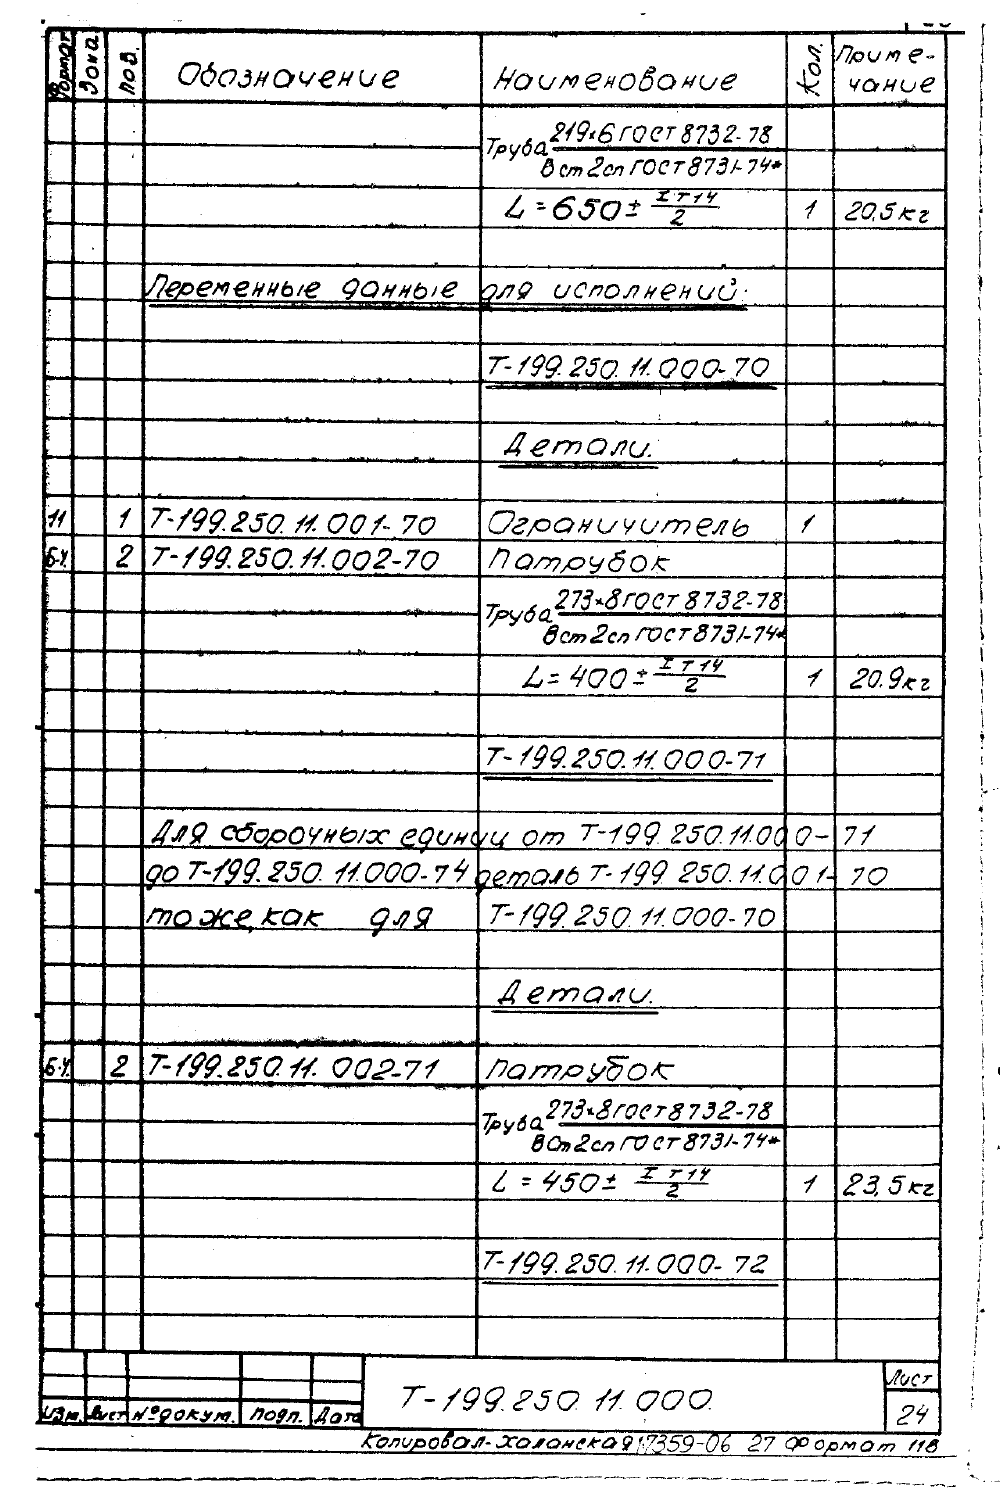 Формат Зона Поз. Обозначение Наименование Кол. Приме-
чание
Труба 219×6 ГОСТ 8732-78
Вст2сп ГОСТ 8731-74*
L=650± IT14/2 1 20,5кг
Переменные данные для исполнений:
Т-199.250.11.000-70
Детали.
11 1 Т-199.250.11.001-70 Ограничитель 1
Б.Ч. 2 Т-199.250.11.002-70 Патрубок
Труба 273×8 ГОСТ 8732-78
Вст2сп ГОСТ 8731-74*
L=400± IT14/2 1 20.9кг
Т-199.250.11.000-71
Для сборочных единиц от Т-199.250.11.000-71
до Т-199.250.11.000-74 деталь Т-199.250.11.001-70
тоже, как для Т-199.250.11.000-70
Детали.
Б.Ч. 2 Т-199.250.11.002-71 Патрубок
Труба 273×8 ГОСТ 8732-78
ВСт2сп ГОСТ 8731-74*
L=450± IT14/2 1 23,5кг
Т-199.250.11.000-72
Т-199.250.11.000. Лист
24
Изм. Лист № докум. Подп. Дата
Копировал-Халанская 17359-06 27 Формат 11В